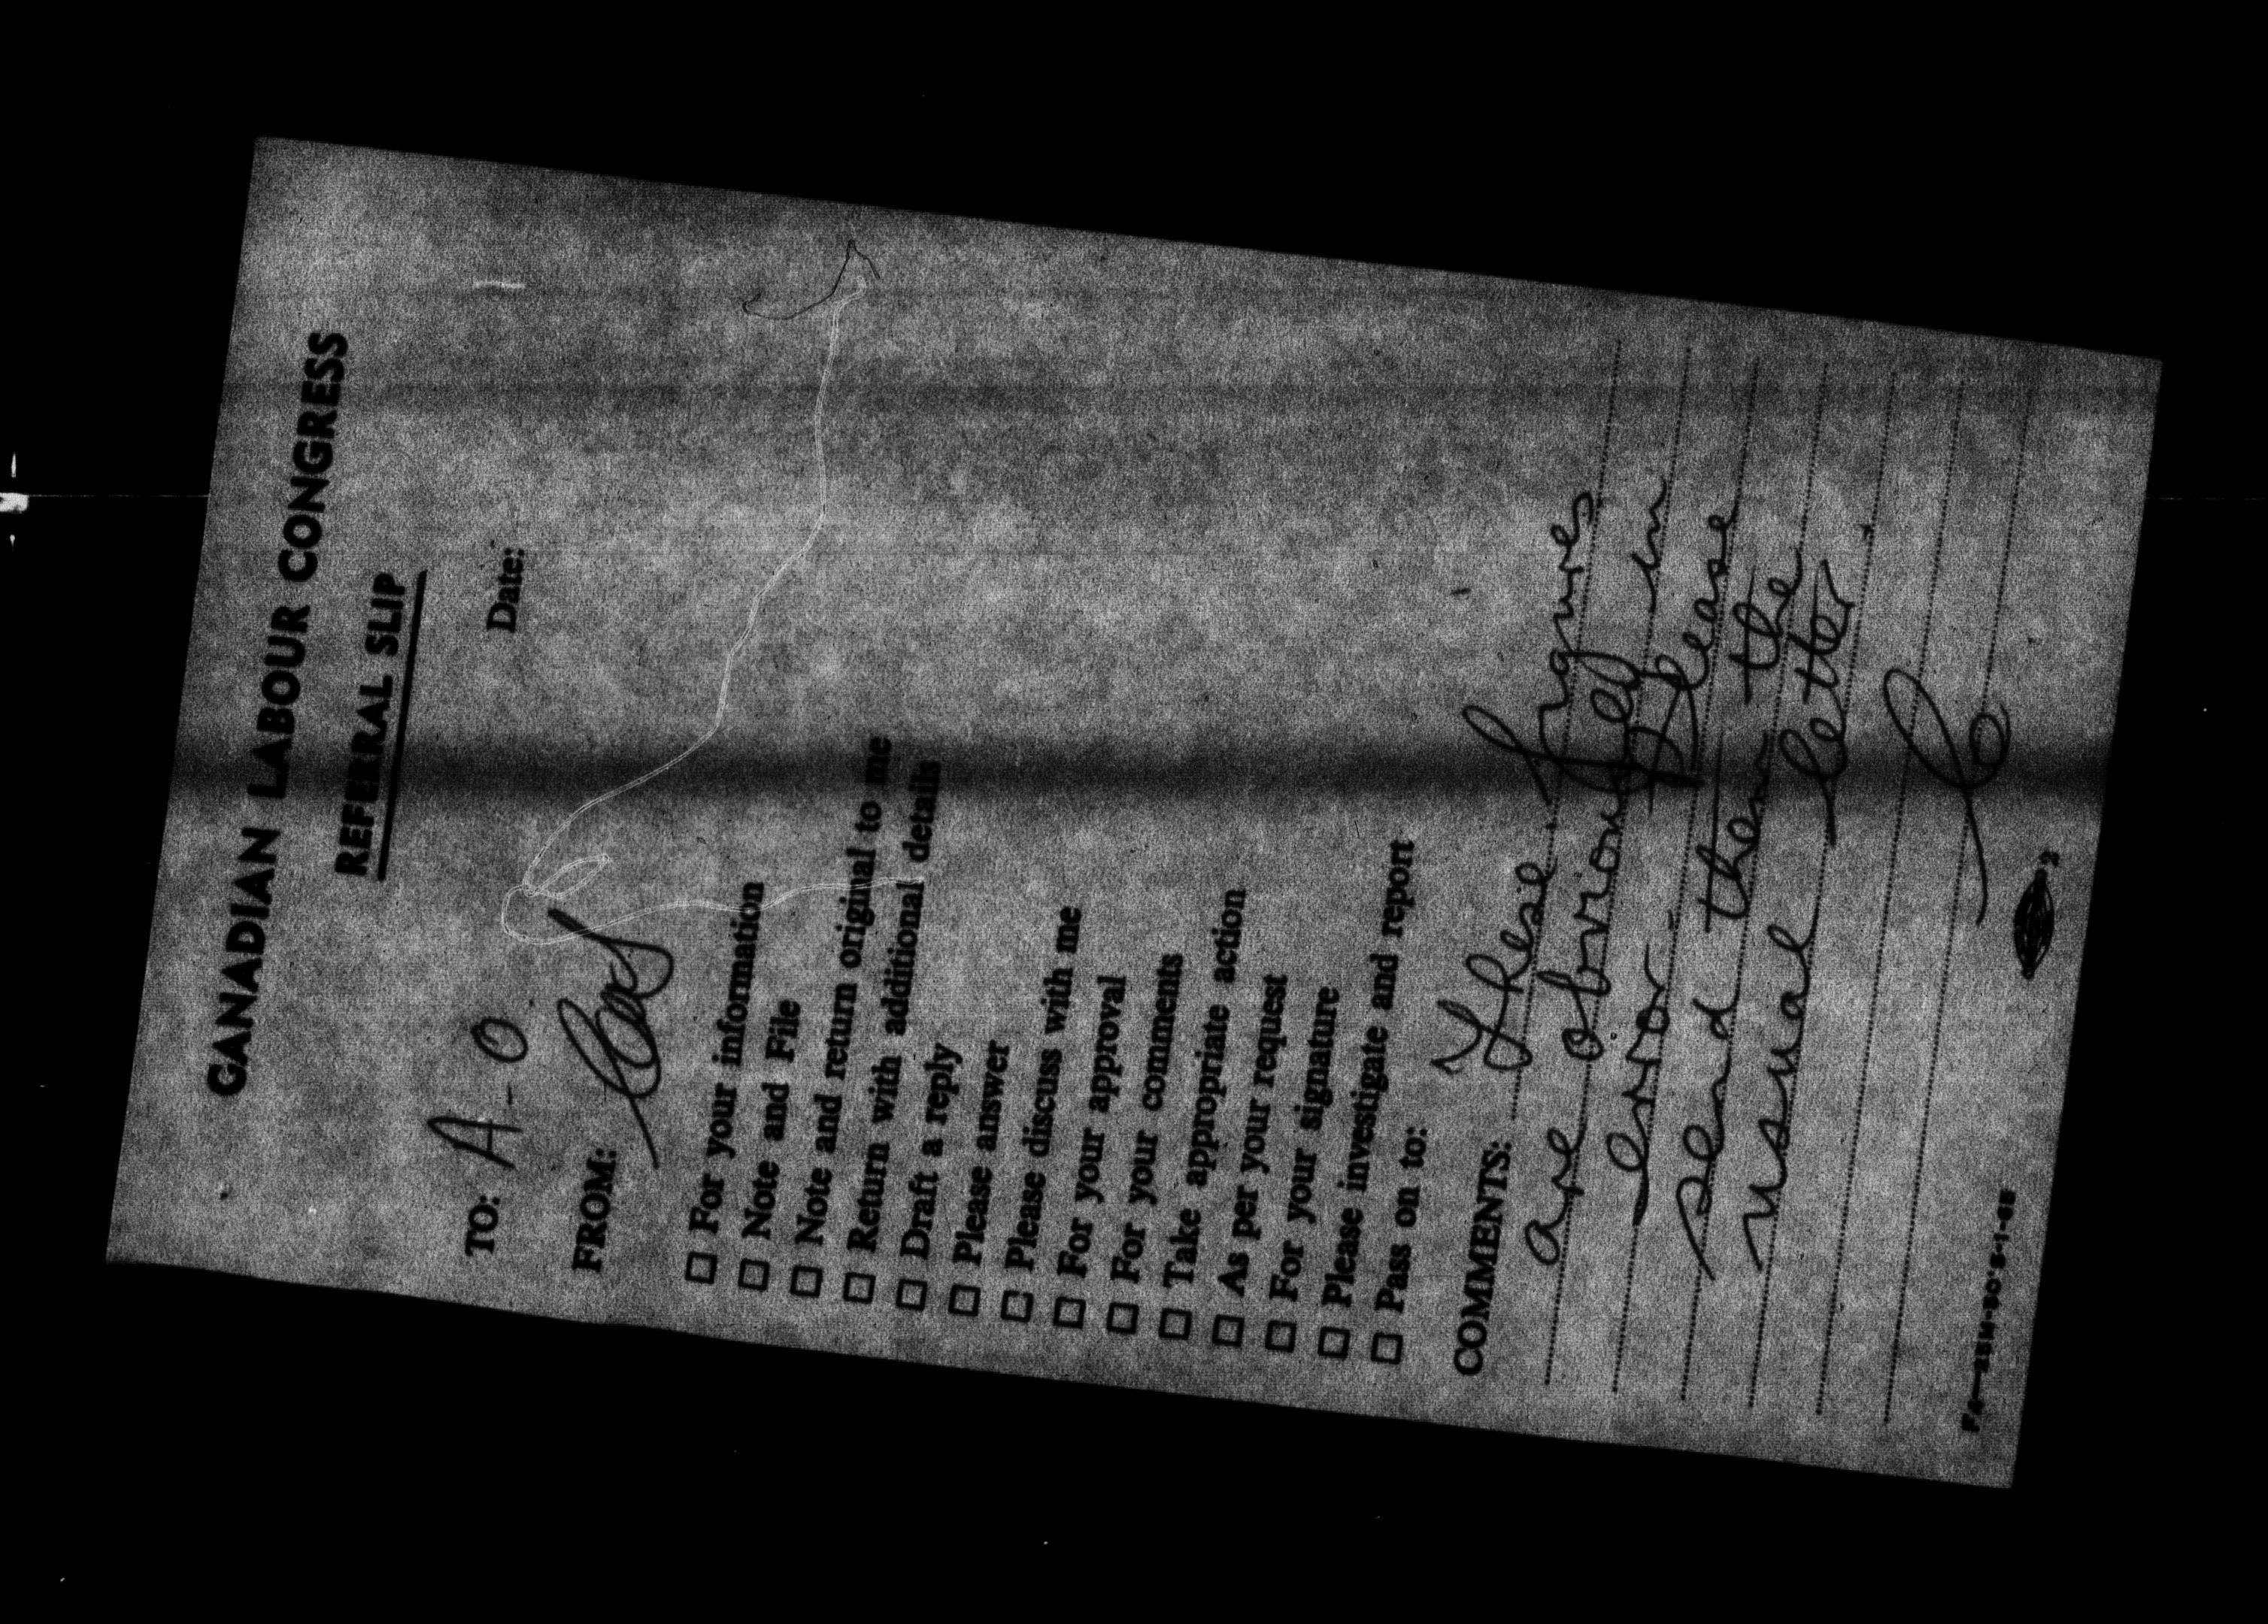 CANADIAN LABOUR CONGRESS
REFERRAL SLIP
Date:
TO: A-O
FROM:
☐ For your information
☐ Note and File
☐ Note and return original to me
☐ Return with additional details
☐ Draft a reply
☐ Please answer
☐ Please discuss with me
☐ For your approval
☐ For your comments
☐ Take appropriate action
☐ As per your request
☐ For your signature
☐ Please investigate and report
☐ Pass on to:
COMMENTS: These figures
are obviously in
error. Please
send them the
usual letter.
2